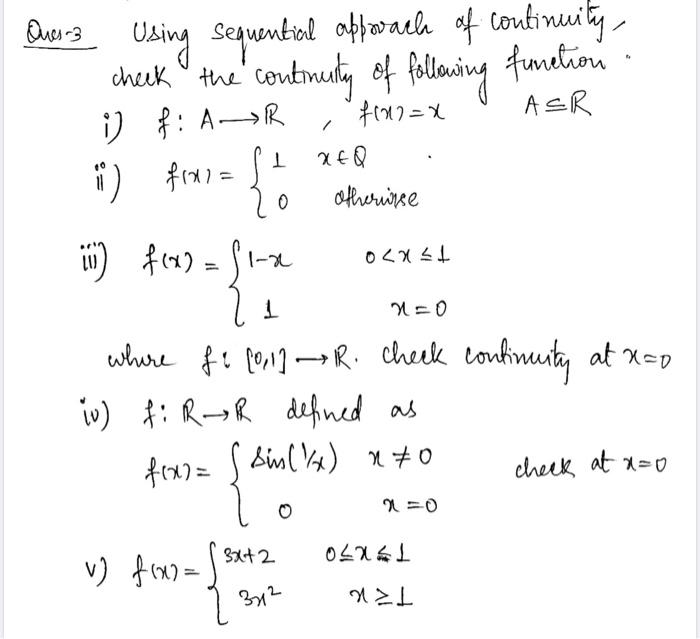 Ques-3 Using sequential approach of continuity,
check the continuity of following function.
i) f: A→R , f(x)=x A⊆R
ii) f(x) = { 1 x∈Q
0 otherwise
iii) f(x) = { 1-x 0<x≤1
1 x=0
where f: [0,1]→R. check continuity at x=0
iv) f: R→R defined as
f(x) = { sin(1/x) x≠0 check at x=0
0 x=0
v) f(x) = { 3x+2 0≤x≤1
3x² x≥1